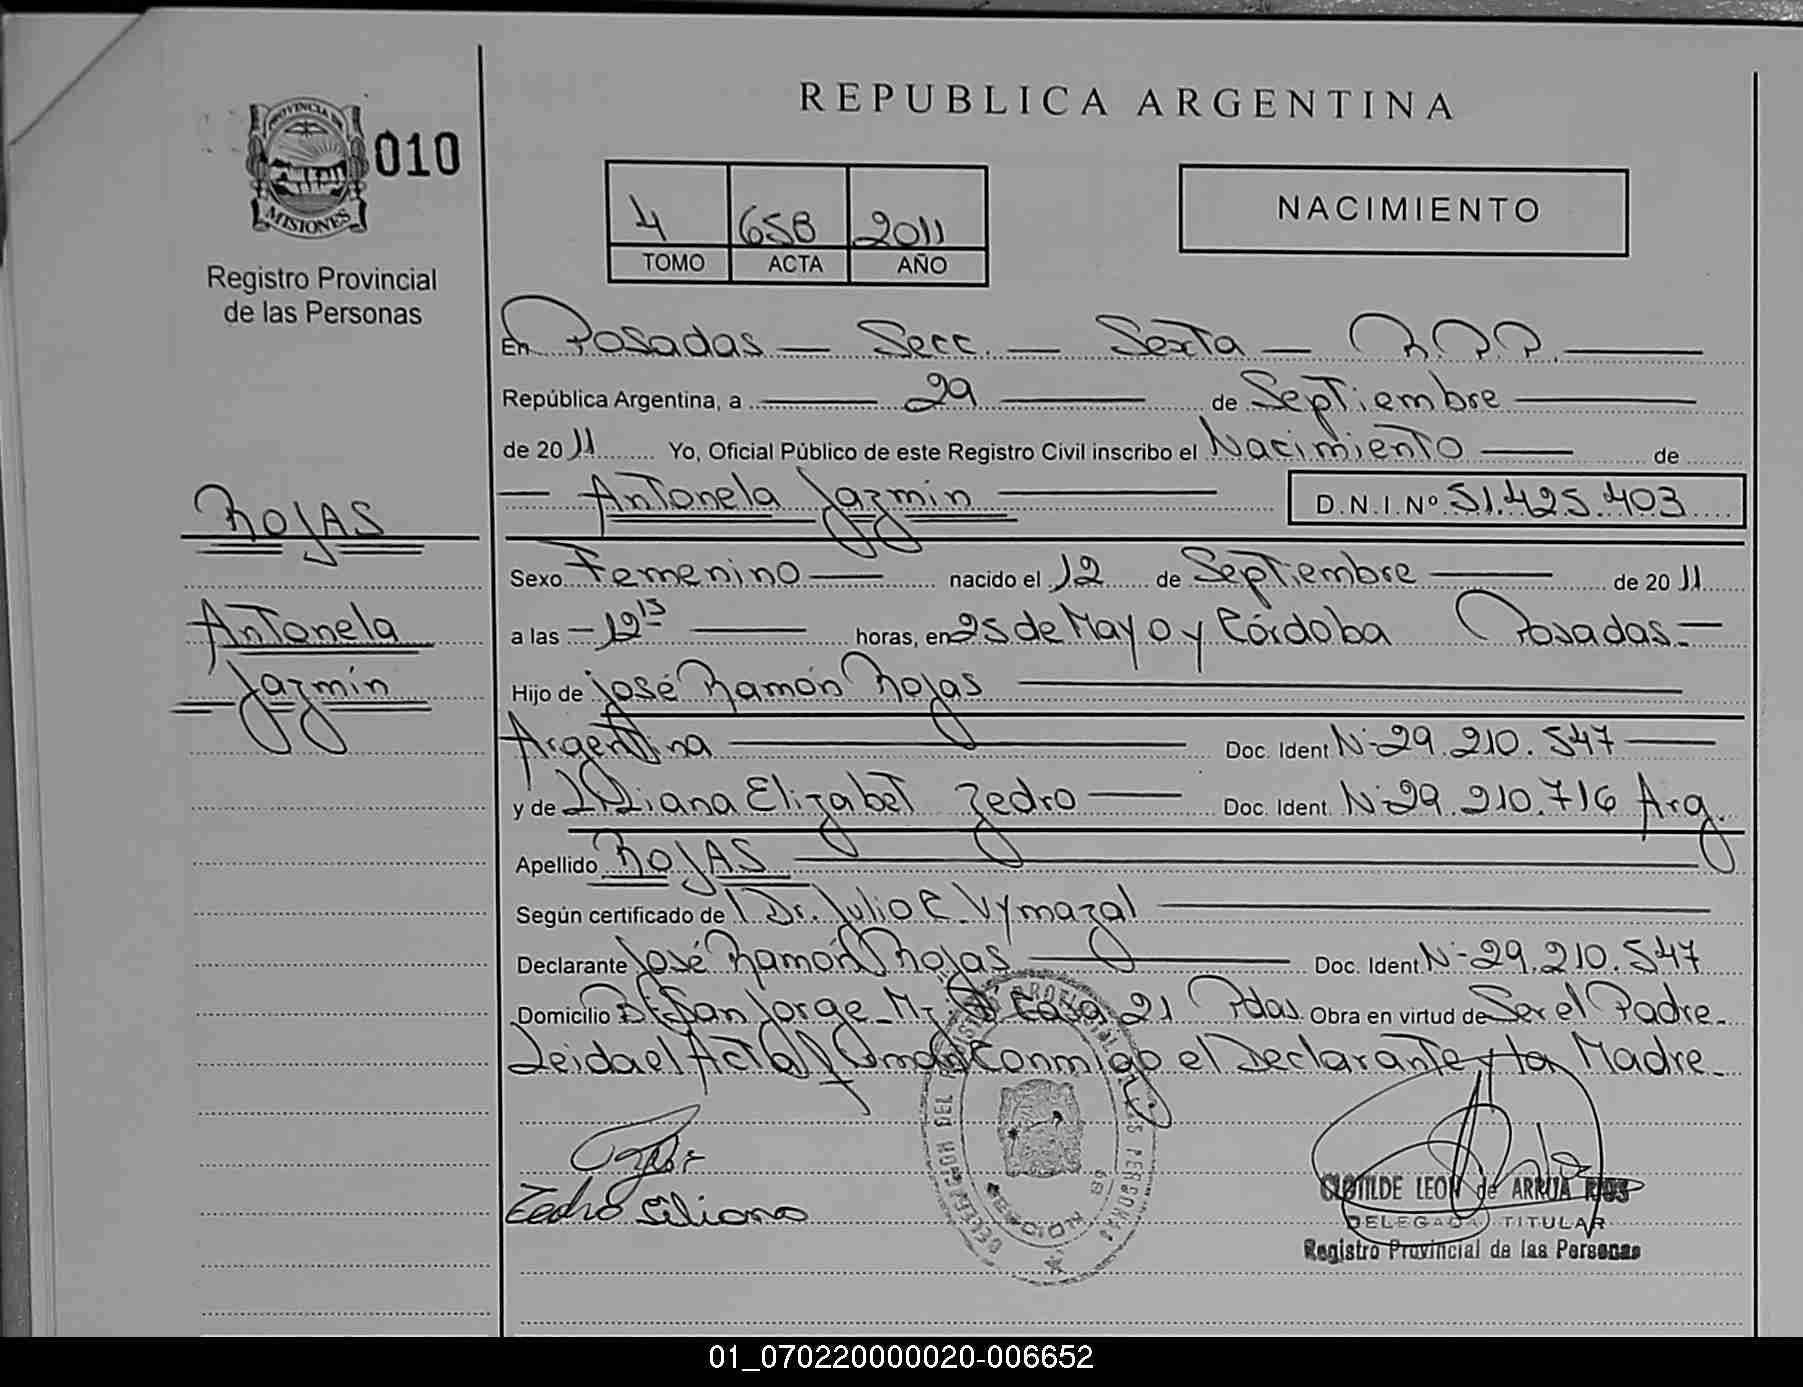 REPUBLICA ARGENTINA
PROVINCIA DE
MISIONES
010
Registro Provincial
de las Personas
4 658 2011
TOMO ACTA AÑO
NACIMIENTO
En Posadas — Secc. — Sexta — R.P.P. —
República Argentina, a — 29 — de Septiembre —
de 2011 Yo, Oficial Público de este Registro Civil inscribo el Nacimiento — de
— Antonela Jazmín — D.N.I.Nº 51.425.403
ROJAS
Antonela
Jazmín
Sexo Femenino — nacido el 12 de Septiembre — de 2011
a las — 12 15 — horas, en 25 de Mayo y Córdoba Posadas. —
Hijo de José Ramón Rojas —
Argentina — Doc. Ident. Nº 29.210.547 —
y de Liliana Elizabet Zedro — Doc. Ident. Nº 29.210.716 Arg.
Apellido ROJAS —
Según certificado de Dr. Julio C. Vymazal —
Declarante José Ramón Rojas — Doc. Ident. Nº 29.210.547
Domicilio Bº San Jorge - Mz Casa 21 Pdas. Obra en virtud de Ser el Padre -
Leida el Acta firman conmigo el Declarante y la Madre -
Zedro Liliana
CLOTILDE LEON de ARRUA RIOS
DELEGADA TITULAR
Registro Provincial de las Personas
01_070220000020-006652